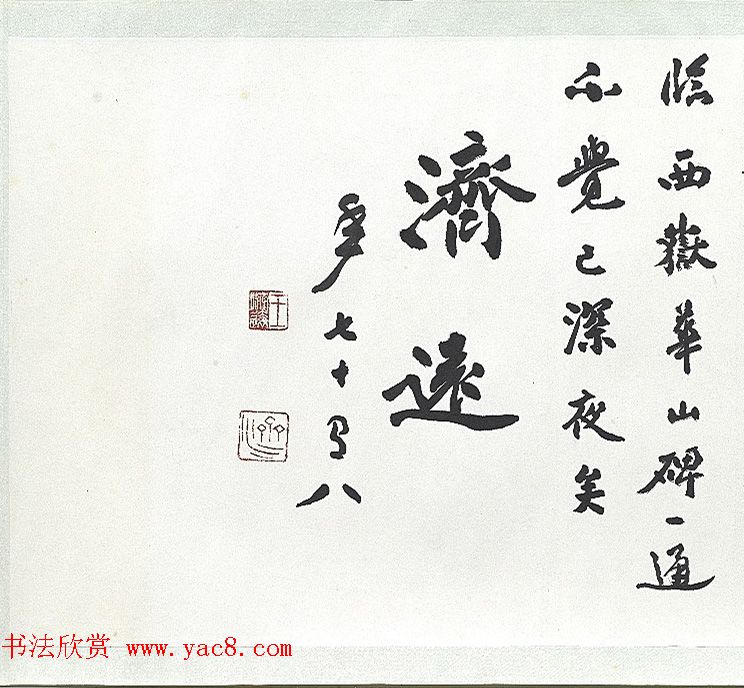 临西嶽華山碑一通
不覺已深夜矣
濟遠
年七十有八
书法欣赏 www.yac8.com